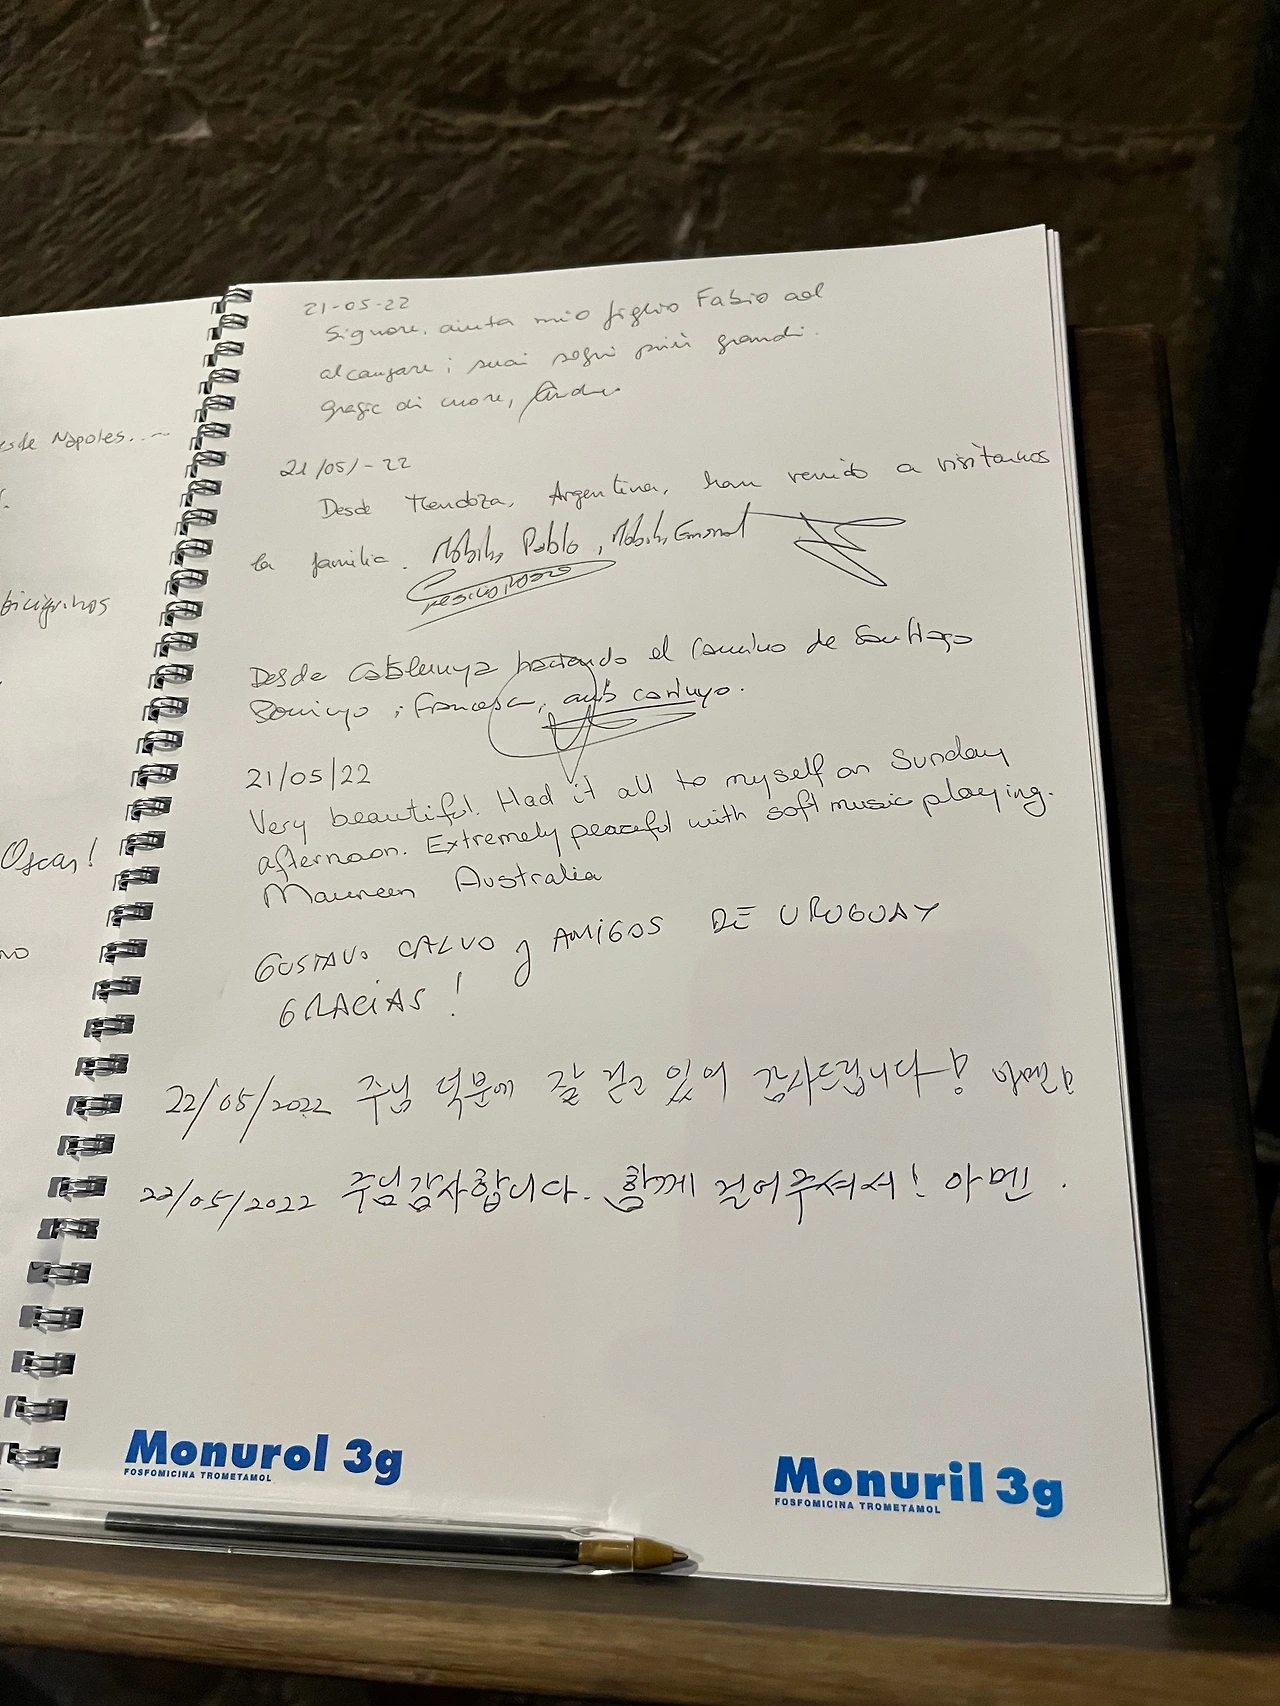 esde Napoles...
bicigrinos
Oscar!
no
21-05-22
Signore, aiuta mio figlio Fabio ad
alcanzare i suoi sogni più grandi.
Grazie di cuore,
21/05/-22
Desde Mendoza, Argentina, han venido a visitarnos
la familia. Pablo,
Desde Catalunya haciendo el Camino de Santiago
Francesca, amb carinyo.
21/05/22
Very beautiful. Had it all to myself on Sunday
afternoon. Extremely peaceful with soft music playing.
Maureen Australia
GUSTAVO CALVO y AMIGOS DE URUGUAY
GRACIAS!
22/05/2022 주님 덕분에 잘 걷고 있어 감사드립니다! 아멘!
22/05/2022 주님감사합니다. 함께 걸어주셔서! 아멘.
Monurol 3g
FOSFOMICINA TROMETAMOL
Monuril 3g
FOSFOMICINA TROMETAMOL